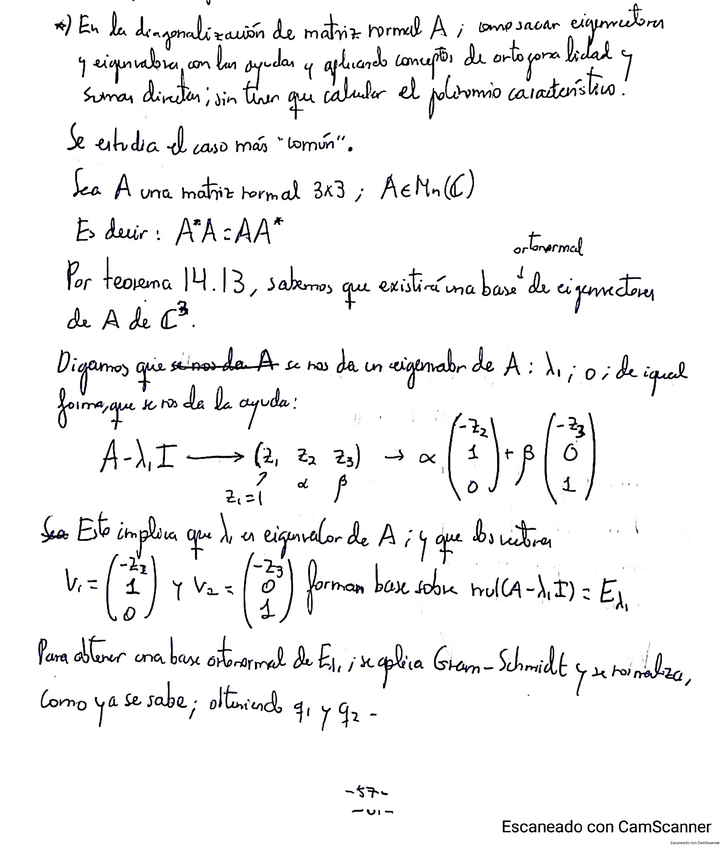 *) En la diagonalización de matriz normal A ; como sacar eigenvectores
y eigenvalores, con las ayudas y aplicando conceptos de ortogonalidad y
sumas directas; sin tener que calcular el polinomio característico.
Se estudia el caso más "común".
Sea A una matriz normal 3x3 ; A∈Mn(ℂ)
Es decir : A*A = AA*
ortonormal
Por teorema 14.13, sabemos que existirá una base ↓ de eigenvectores
de A de ℂ³.
Digamos que si nos da A se nos da un eigenvalor de A : λ₁ ; o ; de igual
forma, que se nos da la ayuda :
A-λ₁I ⟶ (z₁ z₂ z₃) → α (-z₂ 1 0) + β (-z₃ 0 1)
z₁=1 α β
Sea Esto implica que λ₁ es eigenvalor de A ; y que los vectores
V₁ = (-z₂ 1 0) y V₂ = (-z₃ 0 1) forman base sobre nul(A-λ₁I) = Eλ₁
Para obtener una base ortonormal de Eλ₁ ; se aplica Gram-Schmidt y se normaliza,
como ya se sabe ; obteniendo q₁ y q₂ -
-57-
Escaneado con CamScanner
Escaneado con CamScanner